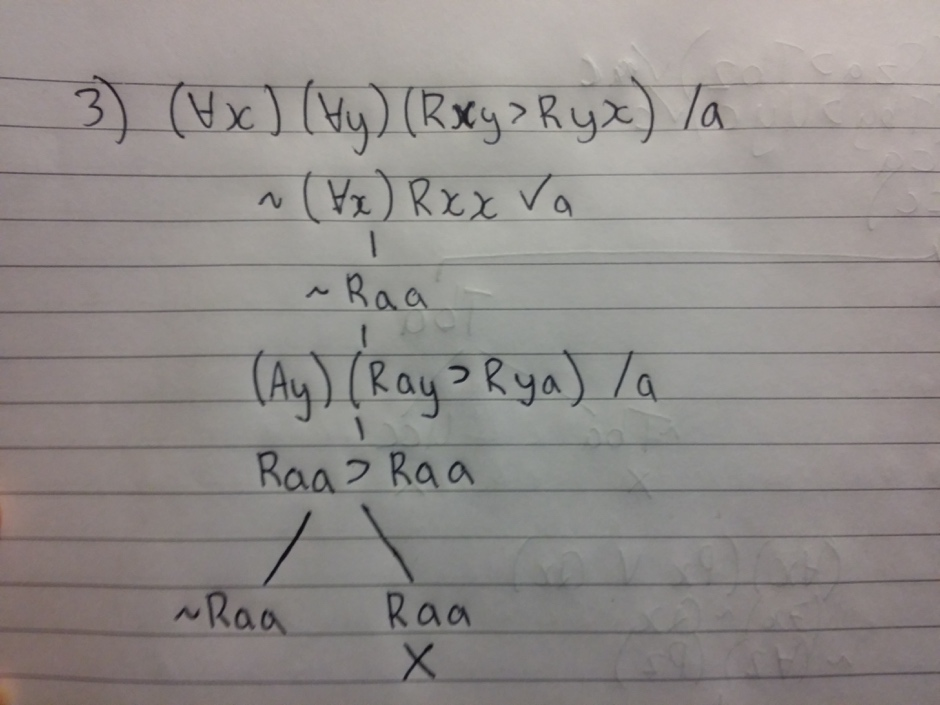 3) (∀x) (∀y) (Rxy > Ryx) /a
~ (∀x) Rxx √a
~ Raa
(Ay) (Ray > Rya) /a
Raa > Raa
~Raa Raa
X